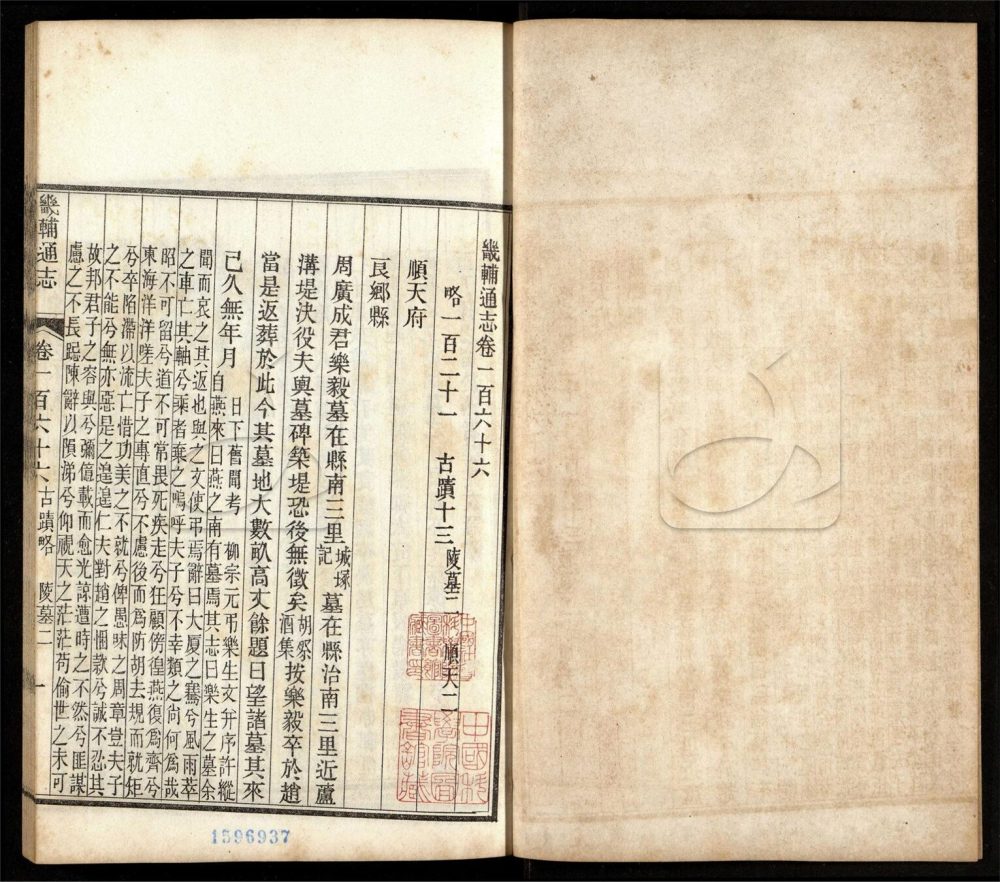 畿輔通志卷一百六十六
略一百二十一　古蹟十三　陵墓二　順天二
順天府
良鄉縣
周廣成君樂毅墓在縣南三里城塚記墓在縣治南三里近蘆
溝堤決役夫輿墓碑築堤恐後無徵矣胡㴞酒集按樂毅卒於趙
當是返葬於此今其墓地大數畝高丈餘題曰望諸墓其來
已久無年月日下舊聞考　柳宗元弔樂生文并序許縱
自燕來曰燕之南有墓焉其志曰樂生之墓余
聞而哀之其返也與之文使弔焉辭曰大厦之騫兮風雨萃
之車亡其軸兮乘者棄之嗚呼夫子兮不幸類之尚何為哉
昭不可留兮道不可常畏死疾走兮狂顧傍徨燕復為齊兮
東海洋洋嗟夫子之專直兮不慮後而為防胡去規而就矩
兮卒陷滯以流亡惜功美之不就兮俾愚昧之周章豈夫子
之不能兮無亦惡是之遑遑仁夫對趙之悃款兮誠不忍其
故邦君子之容與兮彌億載而愈光諒遭時之不然兮匪謀
慮之不長跽陳辭以隕涕兮仰視天之茫茫苟偷世之未可
畿輔通志　卷一百六十六　古蹟略　陵墓二　一
中國科學院圖書館藏
1596937